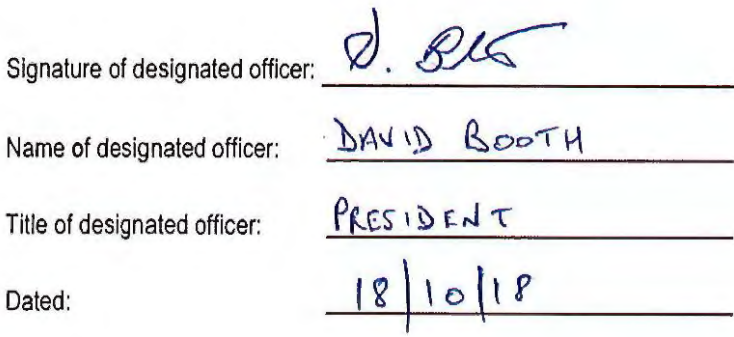 Signature of designated officer: D.
Name of designated officer: DAVID BOOTH
Title of designated officer: PRESIDENT
Dated: 18/10/18